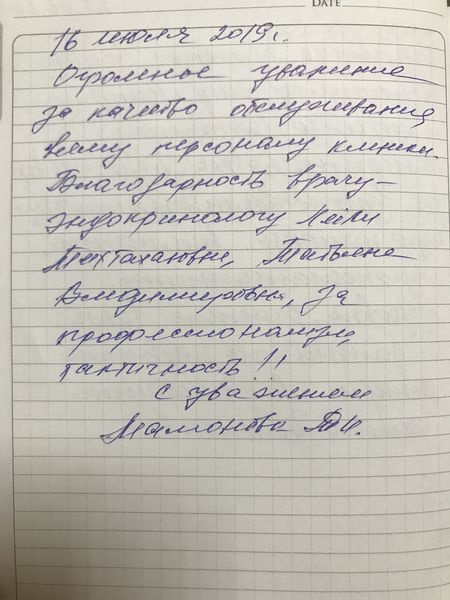 DATE
16 июля 2019 г.
Огромное уважение
за качество обслуживания,
всему персоналу клиники.
Благодарность врачу-
эндокринологу Лейли
Владимировне, за
профессионализм,
тактичность!!
с уважением
Мамонтова